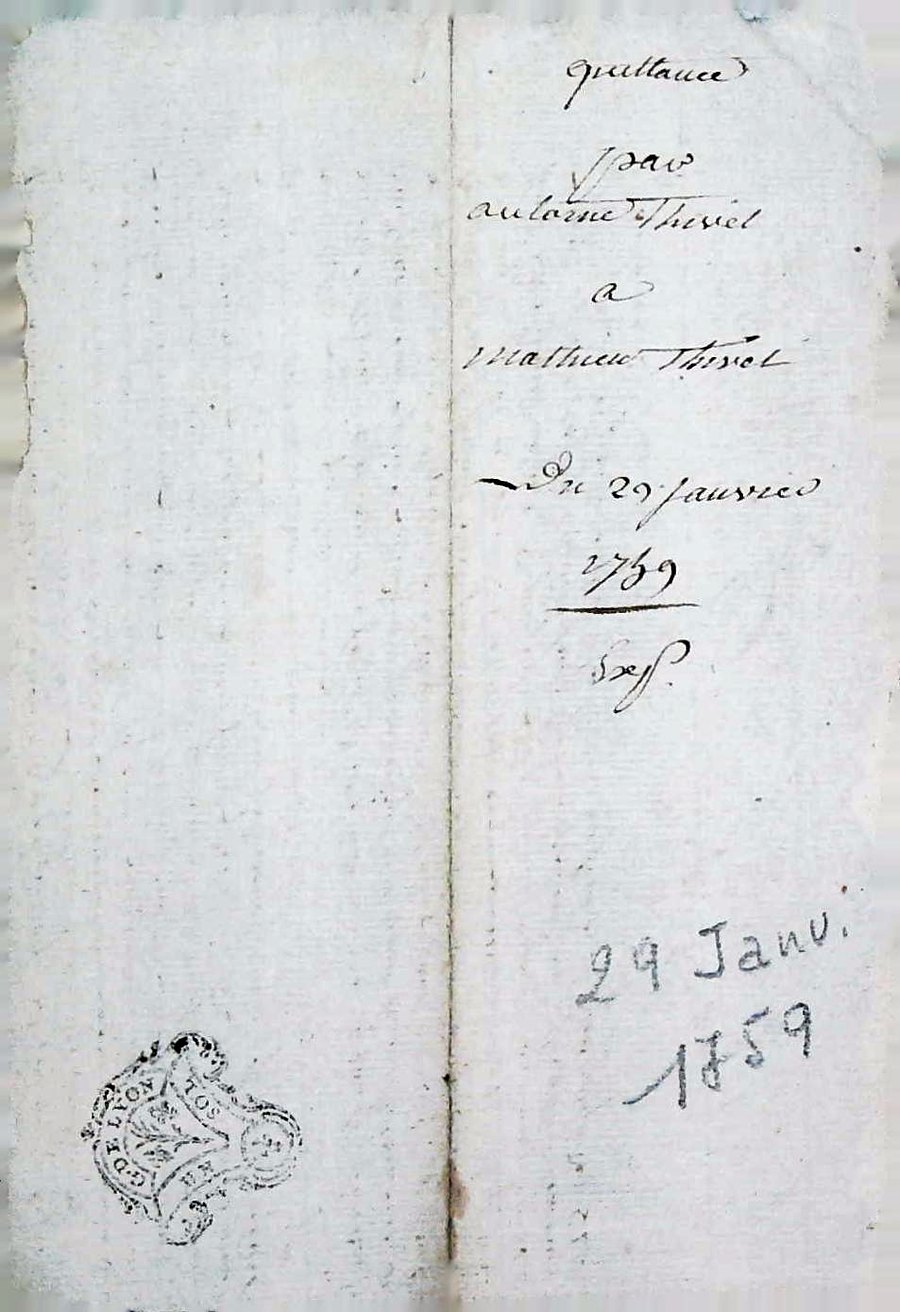 quittance
par
antoine Thivel
a
Mathieu Thivel
Du 29 Janvier
1759
29 Janv.
1759
G. DE LYON
SOLS